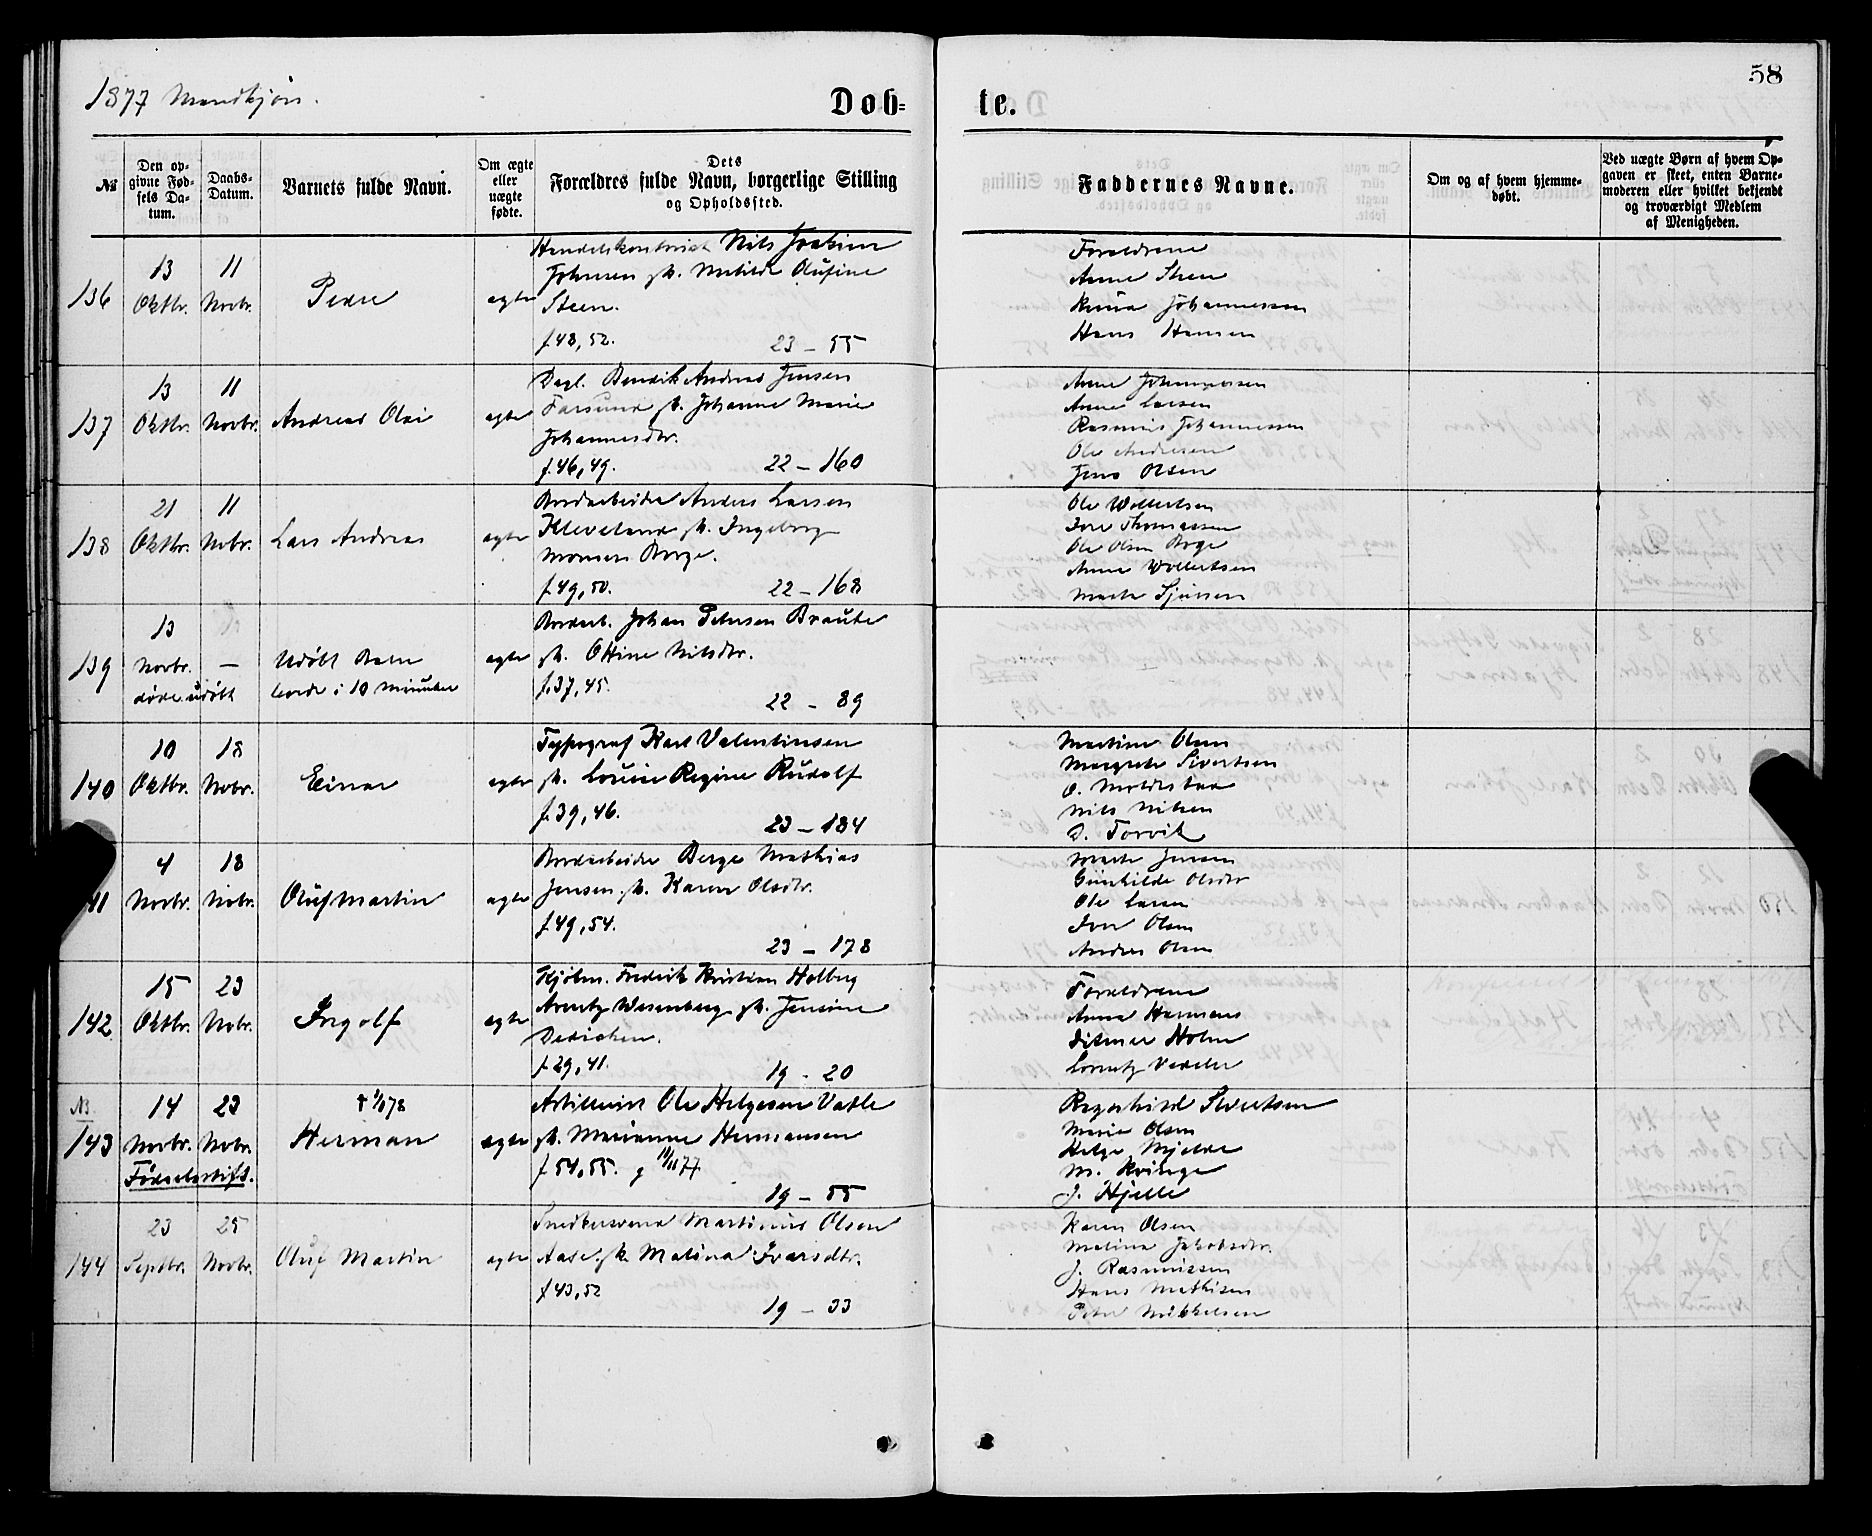 58
1877 Mandkjøn.
Døb-
te.
№
Den op-
givne Fød-
sels Da-
tum.
Daabs-
Datum.
Barnets fulde Navn.
Om ægte
eller
uægte
fødte.
Dets
Forældres fulde Navn, borgerlige Stilling
og Opholdssted.
Faddernes Navne.
Om og af hvem hjemme-
døbt.
Ved uægte Børn af hvem Op-
gaven er skeet, enten Barne-
moderen eller hvilket bekjendt
og troværdigt Medlem
af Menigheden.
136
13
Oktbr.
11
Novbr.
Peder
ægte
Handelskontorist Nils Joakim
Johnsen h. Matilde Olufine
Steen.
f. 48, 52.
23 - 55
Forældrene
Anne Steen
Johannessen
Hans Hansen
137
13
Oktbr.
11
Novbr.
Andreas Olai
ægte
Dagl. Bendik Andreas Jensen
Farsund h. Johanne Marie
Johannesdtr.
f. 46, 49.
22 - 160
Anne Johannessen
Anne Larsen
Rasmus Johannessen
Ole Andresen
Jens Olsen
138
21
Oktbr.
11
Nobr.
Lars Andreas
ægte
Bordarbeider Anders Larsen
Kleveland h. Ingeborg
Monsen Borge.
f. 49, 50.
22 - 168
Ole Wollertsen
Iver Thomassen
Ole Olsen Borge
Anna Wollertsen
Marte
139
13
Novbr.
døde udøbt
—
Udøbt Barn
levede i 10 Minuter
ægte
Bordarb. Johan Petersen Braute
h. Ottine Nilsdtr.
f. 37, 45.
22 - 89
140
10
Oktbr.
18
Nobr.
Einar
ægte
Typograf Karl Valentinsen
h. Louise Regine Rudolf
f. 39, 46.
23 - 184
Martine Olsen
Margrete Sivertsen
O. Moldestad
Nils Nilsen
D. Torvik
41
4
Novbr.
18
Nobr.
Oluf Martin
ægte
Bordarbeider Berge Mathias
Jensen h. Karen Olsdtr.
f. 49, 54.
23 - 178
Marte Jensen
Gunhilde Olsdtr
Ole Larsen
Iver Olsen
Andreas Olsen
142
15
Oktbr.
23
Nobr.
Ingolf
ægte
Kjøbm. Fredrik Kristian Holberg
Arentz Wesenberg h. Jensine
Dedichen.
f. 29, 41.
19 - 20
Forældrene
Anna Hermans
Ditmar Holm
Lorentz Vedeler
NB.
143
14
Novbr.
23
Nobr.
Fødselsstift.
† 1/8 78
Herman
ægte
Artillerist Ole Helgesen Vatle
h. Marianne Hermansen
f. 54, 55. g 11/11 77.
19 - 55
Sivertsen
Marie Olsen
Helge Mjelde
M. Kvinge
J. Hjelle
144
23
Septbr.
25
Novbr.
Oluf Martin
ægte
Snedkersvend Martinus Olsen
Aase h. Malina Ivarsdtr.
f 43, 52
19 - 33
Karen Olsen
Malina Jakobsdtr.
J. Rasmussen
Hans Mathisen
Peter Mikkelsen